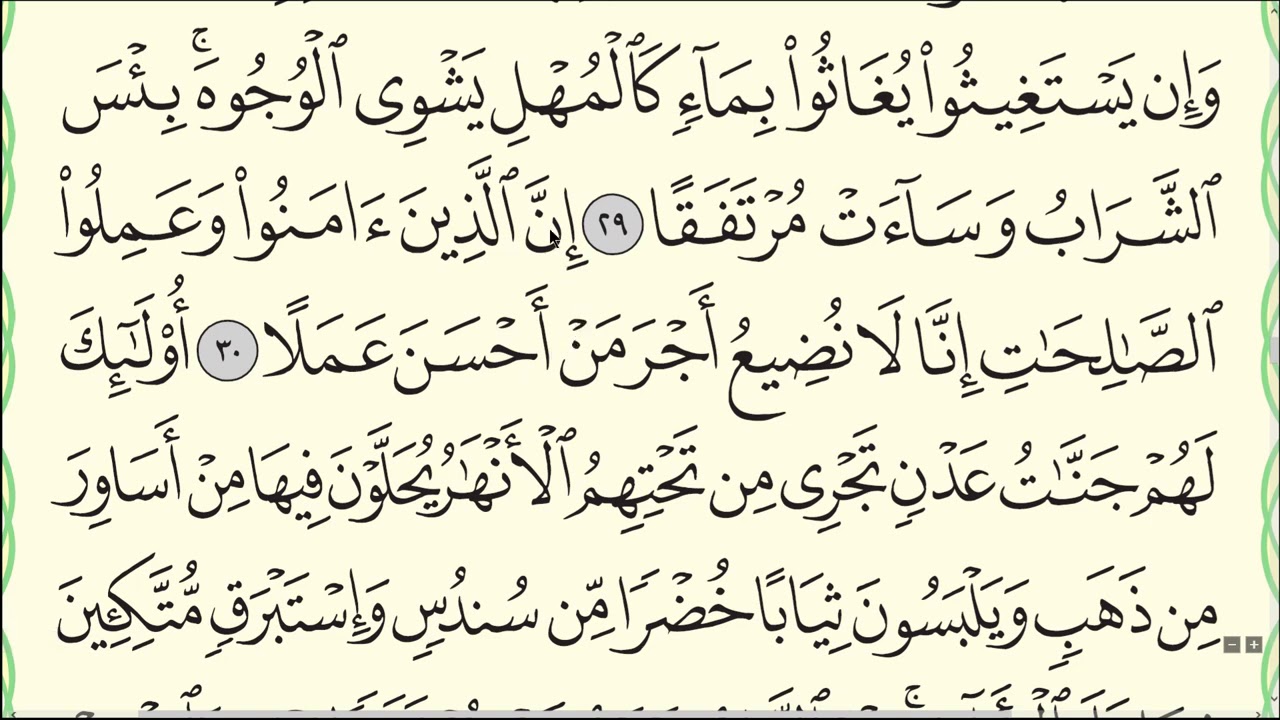 وَإِن يَسْتَغِيثُوا۟ يُغَاثُوا۟ بِمَآءٍ كَٱلْمُهْلِ يَشْوِى ٱلْوُجُوهَ ۚ بِئْسَ
ٱلشَّرَابُ وَسَآءَتْ مُرْتَفَقًا ٢٩ إِنَّ ٱلَّذِينَ ءَامَنُوا۟ وَعَمِلُوا۟
ٱلصَّـٰلِحَـٰتِ إِنَّا لَا نُضِيعُ أَجْرَ مَنْ أَحْسَنَ عَمَلًا ٣٠ أُو۟لَـٰٓئِكَ
لَهُمْ جَنَّـٰتُ عَدْنٍ تَجْرِى مِن تَحْتِهِمُ ٱلْأَنْهَـٰرُ يُحَلَّوْنَ فِيهَا مِنْ أَسَاوِرَ
مِن ذَهَبٍ وَيَلْبَسُونَ ثِيَابًا خُضْرًا مِّن سُندُسٍ وَإِسْتَبْرَقٍ مُّتَّكِـِٔينَ